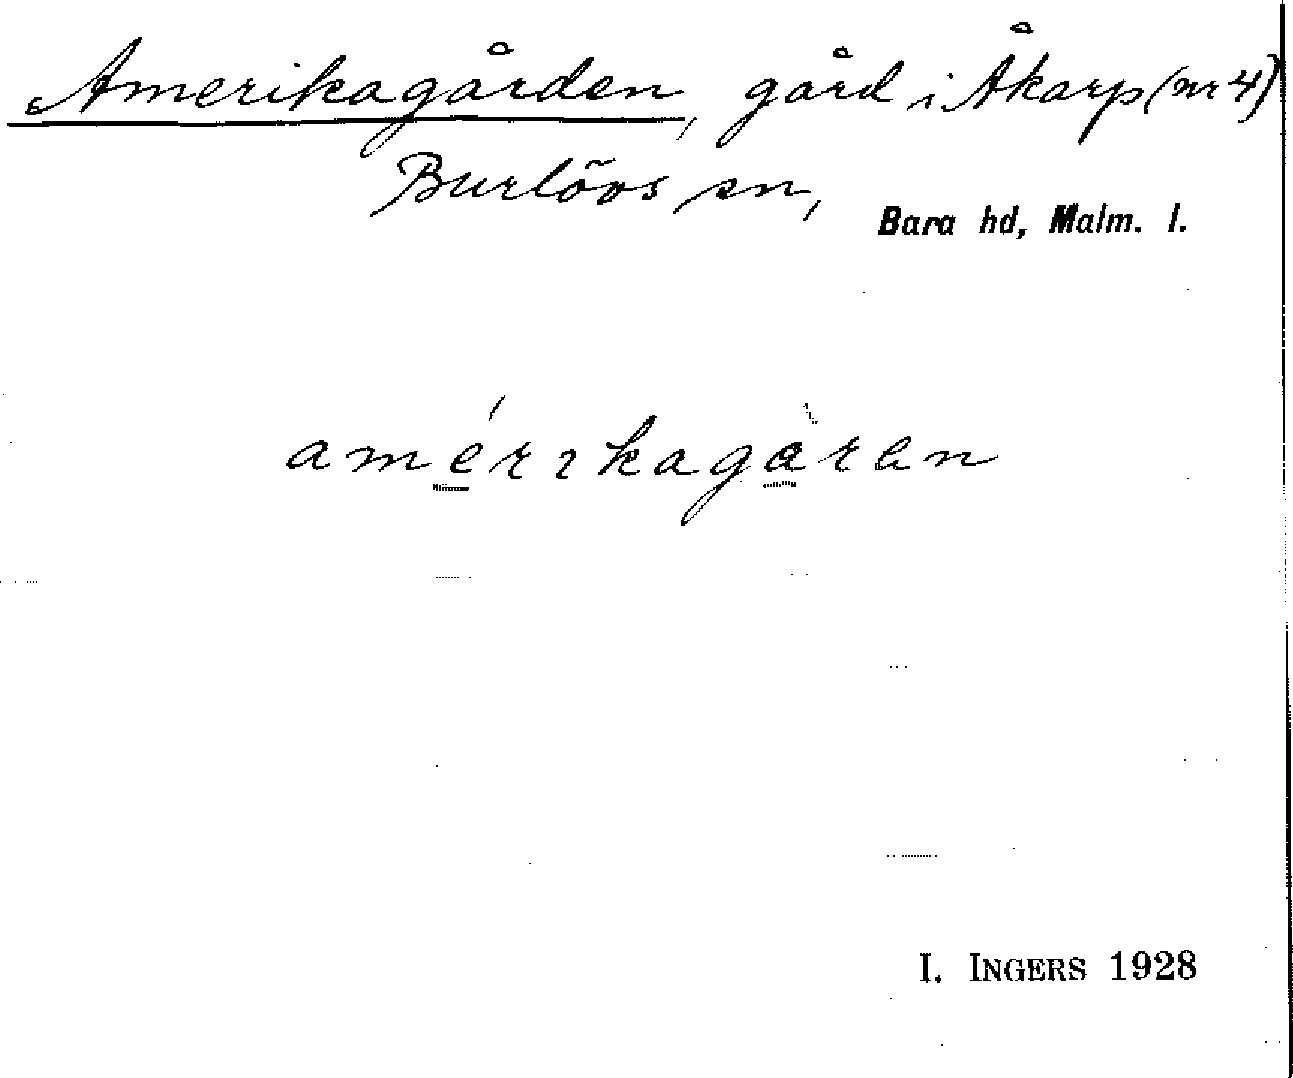 Amerikagården, gård i Åkarp (nr 4)
Burlövs sn,
Bara hd, Malm. l.
amérıkagàren
I. INGERS 1928